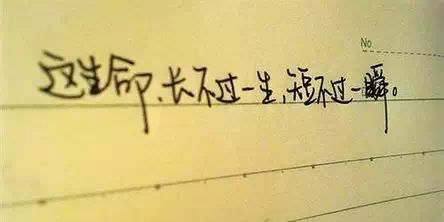 No
这生命、长不过一生，短不过一瞬。